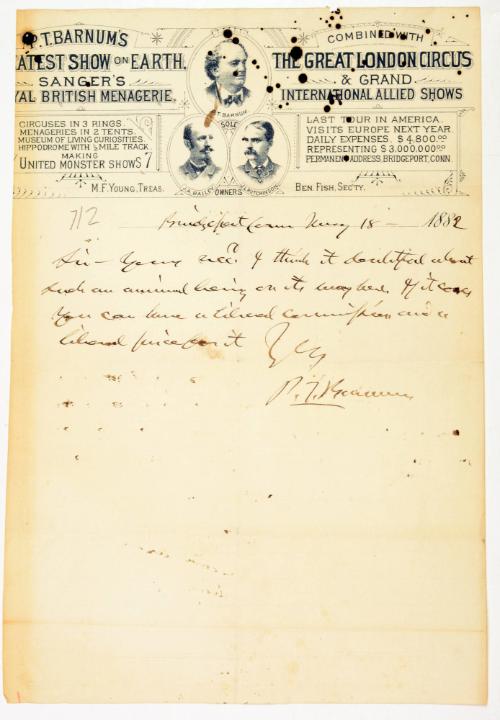 P.T. BARNUM'S
ATEST SHOW ON EARTH.
SANGER'S
YAL BRITISH MENAGERIE.
P.T. BARNUM
COMBINED WITH
THE GREAT LONDON CIRCUS
& GRAND
INTERNATIONAL ALLIED SHOWS
CIRCUSES IN 3 RINGS.
MENAGERIES IN 2 TENTS.
MUSEUM OF LIVING CURIOSITIES.
HIPPODROME WITH ½ MILE TRACK
MAKING
UNITED MONSTER SHOWS 7
SOLE
J.A. BAILEY
OWNERS
J.L. HUTCHINSON
LAST TOUR IN AMERICA.
VISITS EUROPE NEXT YEAR
DAILY EXPENSES. $4,800.00
REPRESENTING $3,000,000.00
PERMANENT ADDRESS, BRIDGEPORT, CONN.
M.F. YOUNG, TREAS.
BEN. FISH, SECTY.
712
Bridgeport Conn 18 - 1882
Sir - Yours recd. I think it doubtful about
such an animal being on its way here. If it comes
you can have a liberal commission and a
liberal price for it
P. T. Barnum